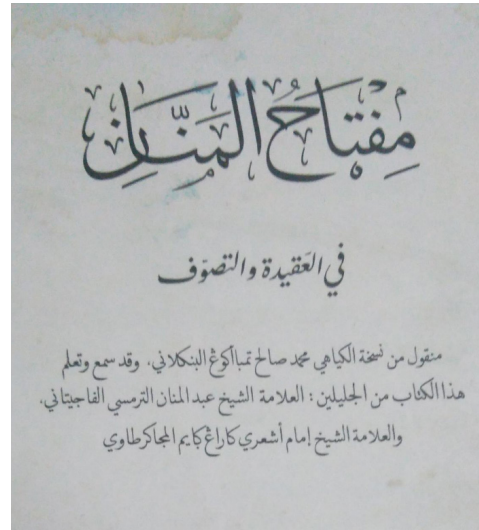 مِفْتَاحُ المَنَّانِ
في العَقِيدة والتصوّف
منقول من نسخة الكياهي محمد صالح تمباأكوڠ البنكلاني. وقد سمع وتعلم
هذا الكتاب من الجليلين : العلامة الشيخ عبد المنان الترمسي الفاجيتاني.
والعلامة الشيخ إمام أشعري كاراڠ كبايم المجاكرطاوي